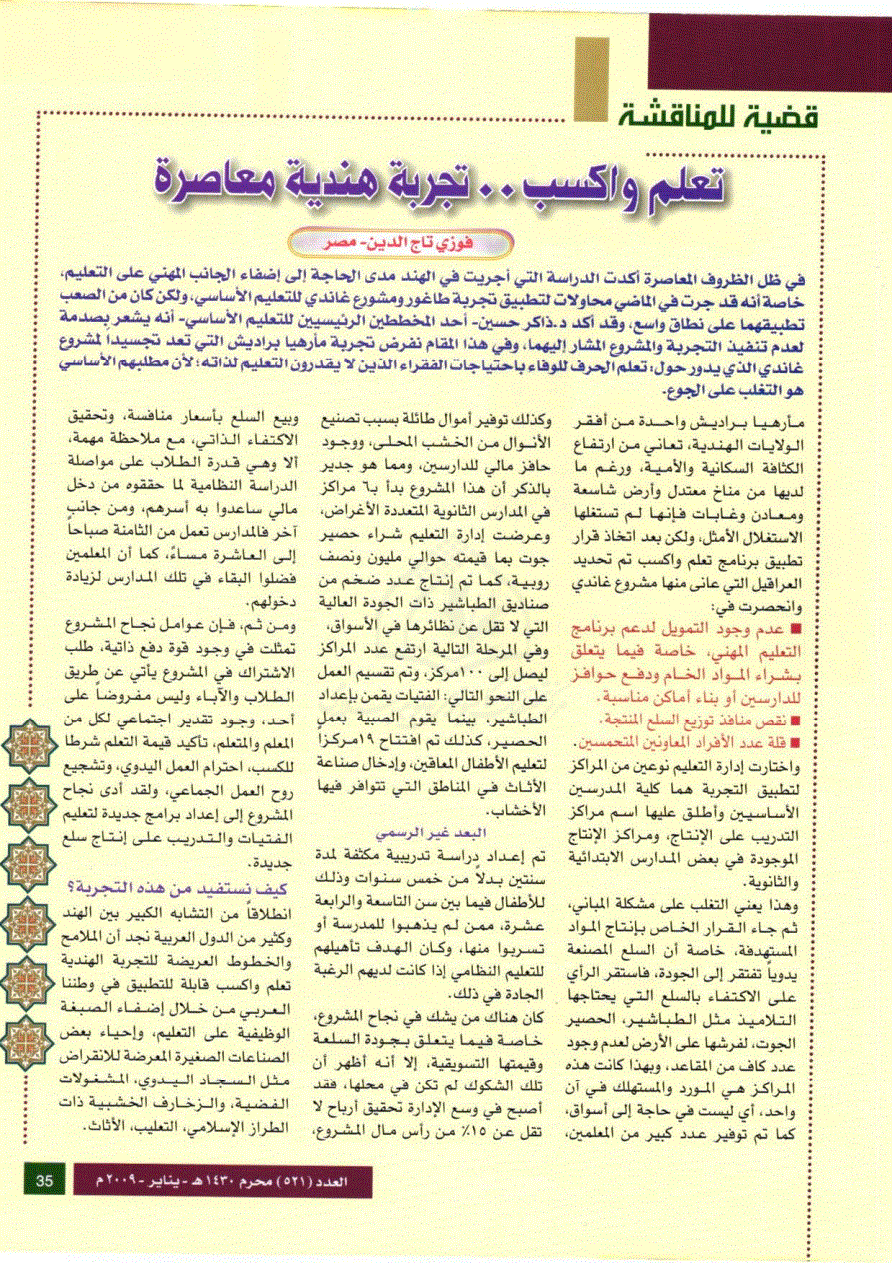 قضية للمناقشة
تعلم واكسب .. تجربة هندية معاصرة
فوزي تاج الدين- مصر
في ظل الظروف المعاصرة أكدت الدراسة التي أجريت في الهند مدى الحاجة إلى إضفاء الجانب المهني على التعليم،
خاصة أنه قد جرت في الماضي محاولات لتطبيق تجربة طاغور ومشورع غاندي للتعليم الأساسي، ولكن كان من الصعب
تطبيقهما على نطاق واسع، وقد أكد د.ذاكر حسين- أحد المخططين الرئيسيين للتعليم الأساسي- أنه يشعر بصدمة
لعدم تنفيذ التجربة والمشروع المشار إليهما، وفي هذا المقام نفرض تجربة مأرهيا براديش التي تعد تجسيداً لمشروع
غاندي الذي يدور حول: تعلم الحرف للوفاء باحتياجات الفقراء الذين لا يقدرون التعليم لذاته؛ لأن مطلبهم الأساسي
هو التغلب على الجوع.
مأرهيا براديش واحدة من أفقر
الولايات الهندية، تعاني من ارتفاع
الكثافة السكانية والأمية، ورغم ما
لديها من مناخ معتدل وأرض شاسعة
ومعادن وغابات فإنها لم تستغلها
الاستغلال الأمثل، ولكن بعد اتخاذ قرار
تطبيق برنامج تعلم واكسب تم تحديد
العراقيل التي عانى منها مشروع غاندي
وانحصرت في:
■ عدم وجود التمويل لدعم برنامج
التعليم المهني، خاصة فيما يتعلق
بشراء المواد الخام ودفع حوافز
للدارسين أو بناء أماكن مناسبة.
■ نقص منافذ توزيع السلع المنتجة.
■ قلة عدد الأفراد المعاونين المتحمسين.
واختارت إدارة التعليم نوعين من المراكز
لتطبيق التجربة هما كلية المدرسين
الأساسيين وأطلق عليها اسم مراكز
التدريب على الإنتاج، ومراكز الإنتاج
الموجودة في بعض المدارس الابتدائية
والثانوية.
وهذا يعني التغلب على مشكلة المباني،
ثم جاء القرار الخاص بإنتاج المواد
المستهدفة، خاصة أن السلع المصنعة
يدوياً تفتقر إلى الجودة، فاستقر الرأي
على الاكتفاء بالسلع التي يحتاجها
التلاميذ مثل الطباشير، الحصير
الجوت، لفرشها على الأرض لعدم وجود
عدد كاف من المقاعد، وبهذا كانت هذه
المراكز هي المورد والمستهلك في آن
واحد، أي ليست في حاجة إلى أسواق،
كما تم توفير عدد كبير من المعلمين،
وكذلك توفير أموال طائلة بسبب تصنيع
الأنوال من الخشب المحلى، ووجود
حافز مالي للدارسين، ومما هو جدير
بالذكر أن هذا المشروع بدأ بـ٦ مراكز
في المدارس الثانوية المتعددة الأغراض،
وعرضت إدارة التعليم شراء حصير
جوت بما قيمته حوالي مليون ونصف
روبية، كما تم إنتاج عدد ضخم من
صناديق الطباشير ذات الجودة العالية
التي لا تقل عن نظائرها في الأسواق،
وفي المرحلة التالية ارتفع عدد المراكز
ليصل إلى ١٠٠مركز، وتم تقسيم العمل
على النحو التالي: الفتيات يقمن بإعداد
الطباشير، بينما يقوم الصبية بعمل
الحصير، كذلك تم افتتاح ١٩مركزاً
لتعليم الأطفال المعاقين، وإدخال صناعة
الأثاث في المناطق التي تتوافر فيها
الأخشاب.
البعد غير الرسمي
تم إعداد دراسة تدريبية مكثفة لمدة
سنتين بدلاً من خمس سنوات وذلك
للأطفال فيما بين سن التاسعة والرابعة
عشرة، ممن لم يذهبوا للمدرسة أو
تسربوا منها، وكان الهدف تأهيلهم
للتعليم النظامي إذا كانت لديهم الرغبة
الجادة في ذلك.
كان هناك من يشك في نجاح المشروع،
خاصة فيما يتعلق بجودة السلعة
وقيمتها التسويقية، إلا أنه أظهر أن
تلك الشكوك لم تكن في محلها، فقد
أصبح في وسع الإدارة تحقيق أرباح لا
تقل عن ١٥٪ من رأس مال المشروع،
وبيع السلع بأسعار منافسة، وتحقيق
الاكتفاء الذاتي، مع ملاحظة مهمة،
ألا وهي قدرة الطلاب على مواصلة
الدراسة النظامية لما حققوه من دخل
مالي ساعدوا به أسرهم، ومن جانب
آخر فالمدارس تعمل من الثامنة صباحاً
إلى العاشرة مساءً، كما أن المعلمين
فضلوا البقاء في تلك المدارس لزيادة
دخولهم.
ومن ثم، فإن عوامل نجاح المشروع
تمثلت في وجود قوة دفع ذاتية، طلب
الاشتراك في المشروع يأتي عن طريق
الطلاب والآباء وليس مفروضاً على
أحد، وجود تقدير اجتماعي لكل من
المعلم والمتعلم، تأكيد قيمة التعلم شرطا
للكسب، احترام العمل اليدوي، وتشجيع
روح العمل الجماعي، ولقد أدى نجاح
المشروع إلى إعداد برامج جديدة لتعليم
الفتيات والتدريب على إنتاج سلع
جديدة.
كيف نستفيد من هذه التجربة؟
انطلاقاً من التشابه الكبير بين الهند
وكثير من الدول العربية نجد أن الملامح
والخطوط العريضة للتجربة الهندية
تعلم واكسب قابلة للتطبيق في وطننا
العربي من خلال إضفاء الصبغة
الوظيفية على التعليم، وإحياء بعض
الصناعات الصغيرة المعرضة للانقراض
مثل السجاد اليدوي، المشغولات
الفضية، والزخارف الخشبية ذات
الطراز الإسلامي، التعليب، الأثاث.
العدد (٥٢١) محرم ١٤٣٠ هـ - يناير - ٢٠٠٩ م
35